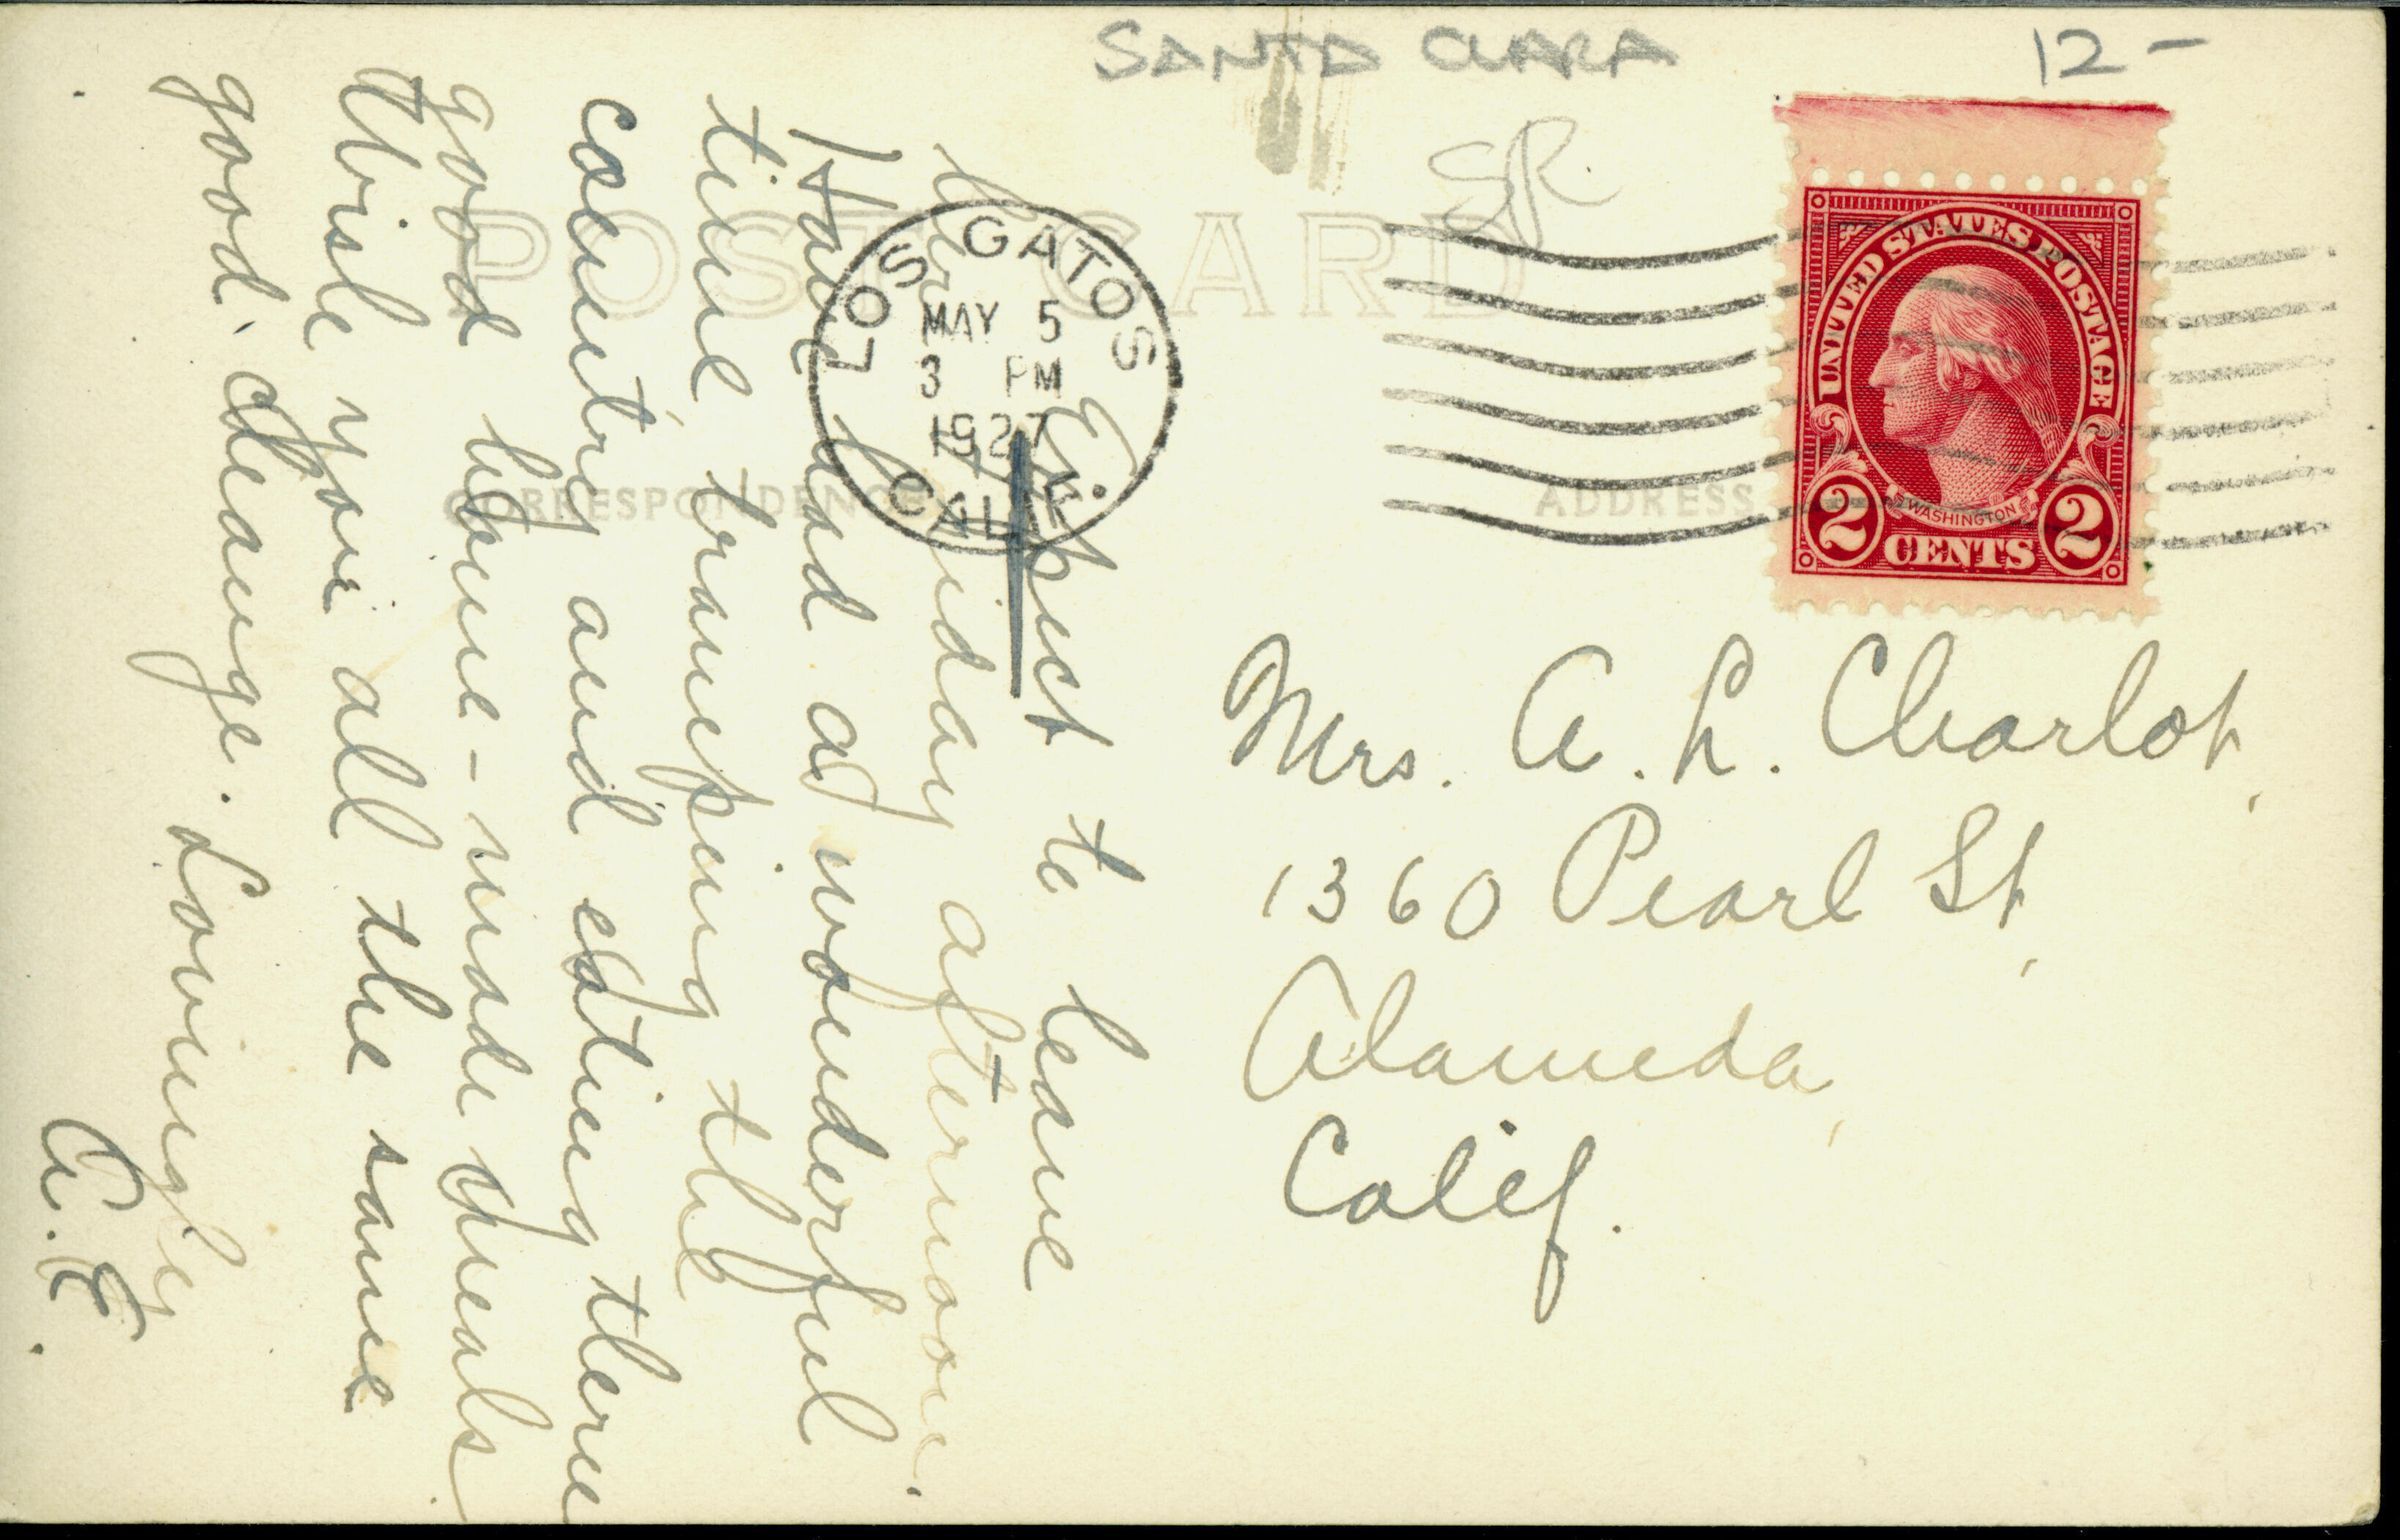 SANTA CLARA
12-
SR
POST CARD
LOS GATOS
MAY 5
3 PM
1927
CALIF
CORRESPONDENCE
ADDRESS
UNITED STATES POSTAGE
WASHINGTON
2 CENTS 2
Expect to leave
here Friday afternoon.
Have had a wonderful
time tramping the
country and eating there
good home-made meals
Wish you all the same
good change. Lovingly
A. E.
Mrs. A. L. Charlot,
1360 Pearl St,
Alameda,
Calif.